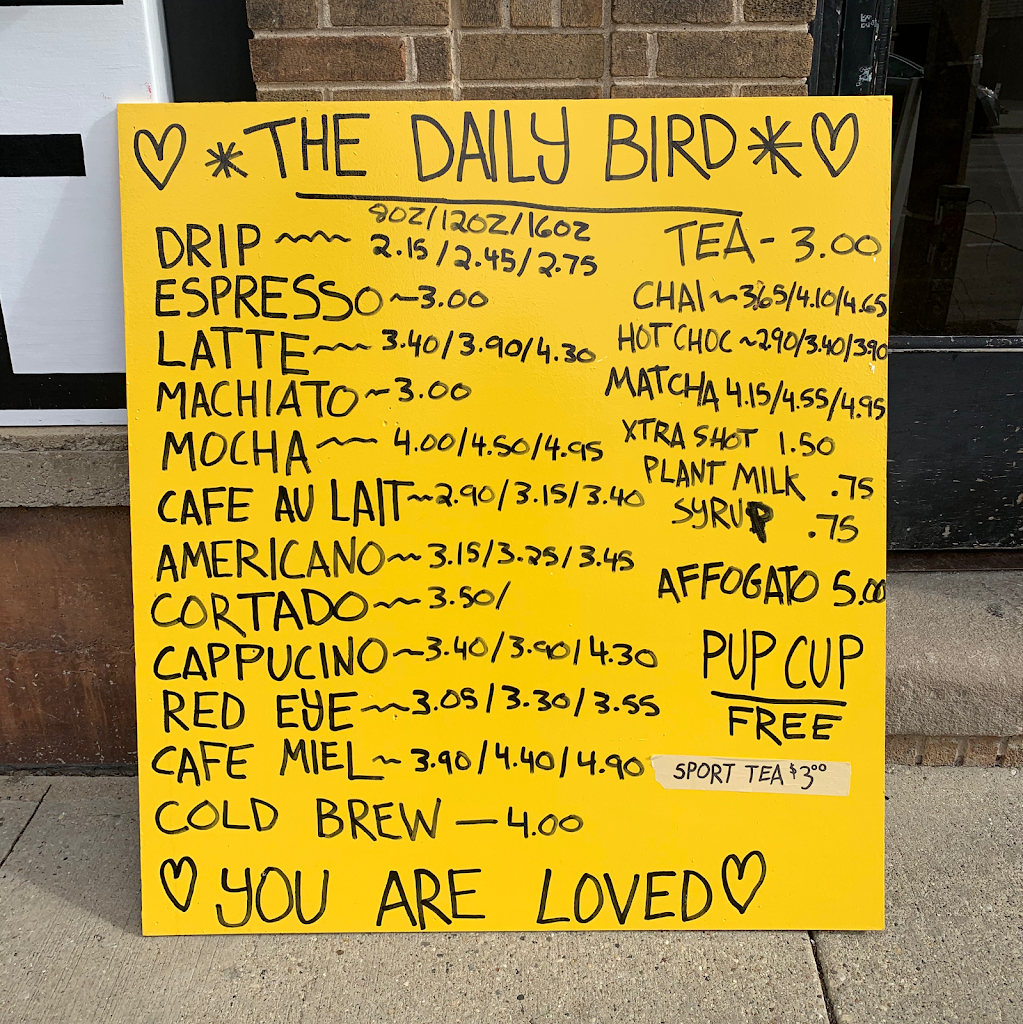 THE DAILY BIRD
8OZ/12OZ/16OZ
DRIP 2.15/2.45/2.75
ESPRESSO ~3.00
LATTE 3.40/3.90/4.30
MACHIATO ~3.00
MOCHA 4.00/4.50/4.95
CAFE AU LAIT ~2.90/3.15/3.40
AMERICANO ~3.15/3.25/3.45
CORTADO ~3.50/
CAPPUCINO ~3.40/3.90/4.30
RED EYE ~3.05/3.30/3.55
CAFE MIEL ~3.90/4.40/4.90
COLD BREW —4.00
TEA- 3.00
CHAI ~3.65/4.10/4.65
HOT CHOC ~2.90/3.40/3.90
MATCHA 4.15/4.55/4.95
XTRA SHOT 1.50
PLANT MILK .75
SYRUP .75
AFFOGATO 5.00
PUP CUP
FREE
SPORT TEA $3.00
YOU ARE LOVED